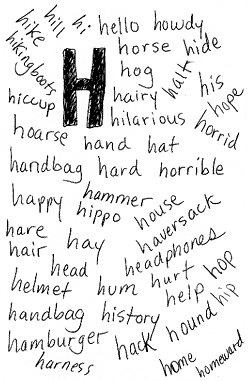 hike hill hi hello howdy
hikingboots horse hide
H hog halt
hiccup hairy his hope
hilarious horrid
hoarse hand hat
handbag hard horrible
happy hammer house
hippo haversack
hare hay headphones
hair head hurt hop
helmet hum help hip
handbag history hound
hamburger hack home homeward
harness